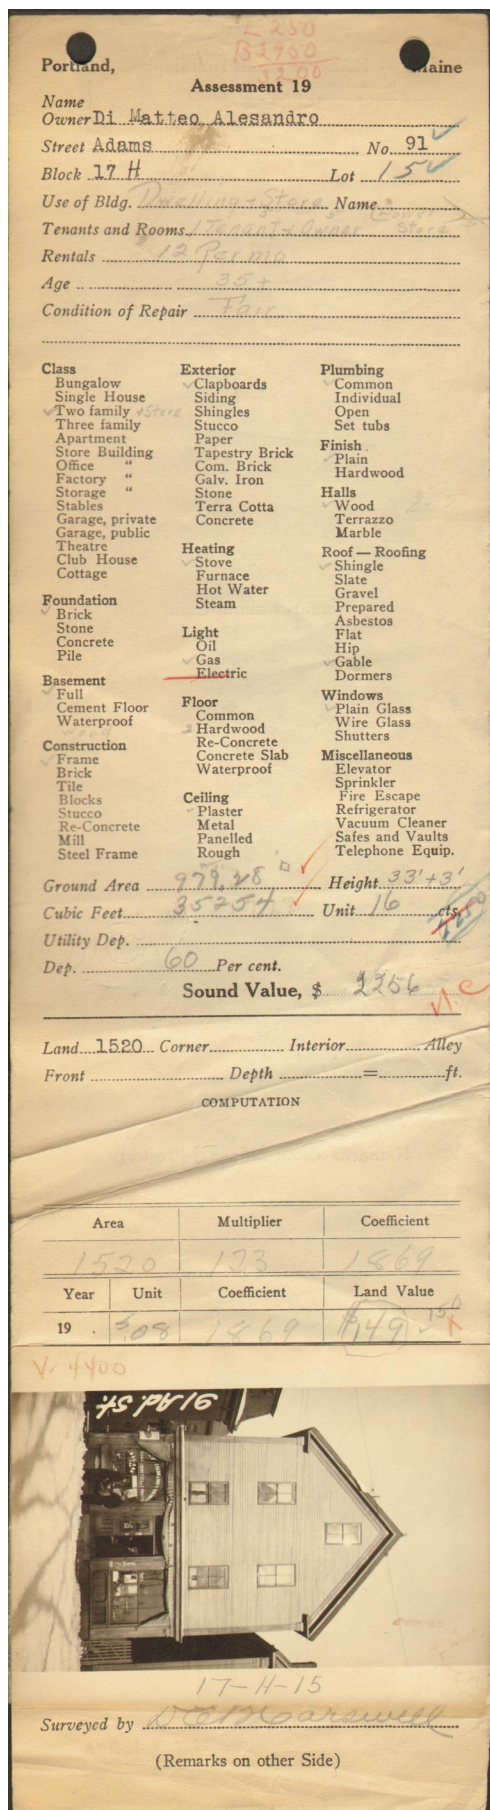 L 250
B 2950
3200
Portland, Maine
Assessment 19
Name
Owner Di Matteo Alesandro
Street Adams No. 91
Block 17 H Lot 15
Use of Bldg. Dwelling + Store Name
Tenants and Rooms 1 Tenant + Owner Store
Rentals 12 Per mo
Age 35 +
Condition of Repair Fair
Class
Bungalow
Single House
Two family + Store
Three family
Apartment
Store Building
Office "
Factory "
Storage "
Stables
Garage, private
Garage, public
Theatre
Club House
Cottage
Foundation
Brick
Stone
Concrete
Pile
Basement
Full
Cement Floor
Waterproof
Construction
Frame
Brick
Tile
Blocks
Stucco
Re-Concrete
Mill
Steel Frame
Exterior
Clapboards
Siding
Shingles
Stucco
Paper
Tapestry Brick
Com. Brick
Galv. Iron
Stone
Terra Cotta
Concrete
Heating
Stove
Furnace
Hot Water
Steam
Light
Oil
Gas
Electric
Floor
Common
2 Hardwood
Re-Concrete
Concrete Slab
Waterproof
Ceiling
Plaster
Metal
Panelled
Rough
Plumbing
Common
Individual
Open
Set tubs
Finish
Plain
Hardwood
Halls
Wood
Terrazzo
Marble
Roof — Roofing
Shingle
Slate
Gravel
Prepared
Asbestos
Flat
Hip
Gable
Dormers
Windows
Plain Glass
Wire Glass
Shutters
Miscellaneous
Elevator
Sprinkler
Fire Escape
Refrigerator
Vacuum Cleaner
Safes and Vaults
Telephone Equip.
Ground Area 979.28 Height 33'+3'
Cubic Feet 35254 Unit 16 cts.
Utility Dep.
Dep. 60 Per cent.
Sound Value, $ 2256
N.C
Land 1520 Corner Interior Alley
Front Depth = ft.
COMPUTATION
Area Multiplier Coefficient
1520 123 1869
Year Unit Coefficient Land Value
19 . 508 1869 $149 150
V. 4400
91 Ad. St.
17-H-15
Surveyed by
(Remarks on other Side)